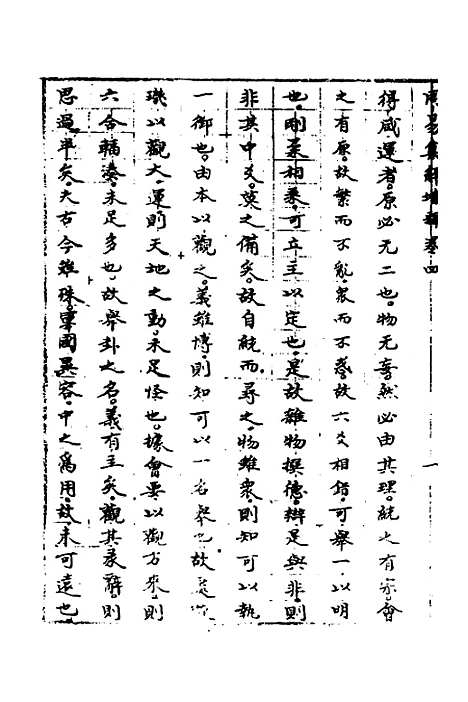 周易集解增釋卷四 一
得咸運者。原必无二也。物无妄。然必由其理。統之有宗。會
之有原。故繁而不亂。衆而不惑。故六爻相錯。可舉一以明
也。剛柔相乘。可立主以定也。是故雜物撰德。辯是與非。則
非其中爻。莫之備矣。故自統而尋之。物雖衆。則知可以執
一御也。由本以觀之。義雖博。則知可以一名舉也。故處
璣以觀大運。則天地之動。未足怪也。據會要以觀方來。則
六合輻湊。未足多也。故舉卦之名。義有主矣。觀其彖辭。則
思過半矣。夫古今雖殊。軍國異容。中之爲用。故未可遠也。